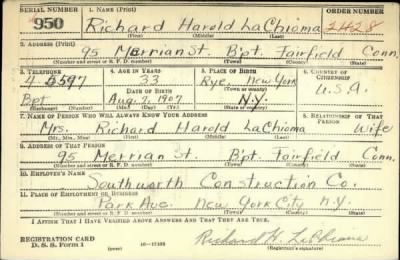 SERIAL NUMBER 1. NAME (Print) ORDER NUMBER
950 Richard Harold LaChioma 2428
(First) (Middle) (Last)
2. ADDRESS (Print)
95 Merrian St. B'pt. Fairfield Conn.
(Number and street or R. F. D. number) (Town) (County) (State)
3. TELEPHONE 4. AGE IN YEARS 5. PLACE OF BIRTH 6. COUNTRY OF CITIZENSHIP
4-5597 33 Rye, New York U.S.A.
DATE OF BIRTH (Town or county)
Bpt Aug. 2, 1907 N.Y.
(Exchange) (Number) (Mo.) (Day) (Yr.) (State or country)
7. NAME OF PERSON WHO WILL ALWAYS KNOW YOUR ADDRESS 8. RELATIONSHIP OF THAT PERSON
Mrs. Richard Harold LaChioma Wife
(Mr., Mrs., Miss) (First) (Middle) (Last)
9. ADDRESS OF THAT PERSON
95 Merrian St. B'pt. Fairfield Conn.
(Number and street or R. F. D. number) (Town) (County) (State)
10. EMPLOYER'S NAME
Southworth Construction Co.
11. PLACE OF EMPLOYMENT OR BUSINESS
Park Ave. New York City N.Y.
(Number and street or R. F. D. number) (Town) (County) (State)
I AFFIRM THAT I HAVE VERIFIED ABOVE ANSWERS AND THAT THEY ARE TRUE.
REGISTRATION CARD
D. S. S. Form 1 (over) Richard H. LaChioma